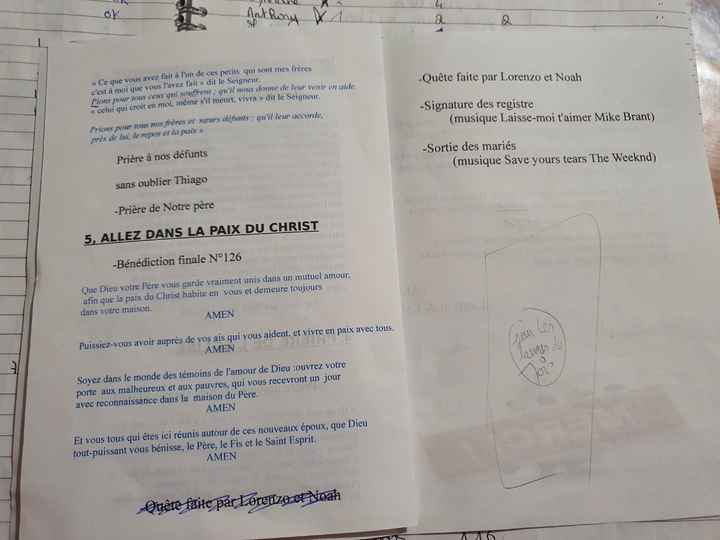 OK
Anthony
1
2
2
« Ce que vous avez fait à l'un de ces petits qui sont mes frères
c'est à moi que vous l'avez fait » dit le Seigneur.
Pions pour tous ceux qui souffrent ; qu'il nous donne de leur venir en aide.
« celui qui croit en moi, même s'il meurt, vivra » dit le Seigneur.
Prions pour tous nos frères et sœurs défunts ; qu'il leur accorde,
près de lui, le repos et la paix »
Prière à nos défunts
sans oublier Thiago
-Prière de Notre père
5, ALLEZ DANS LA PAIX DU CHRIST
-Bénédiction finale N°126
Que Dieu votre Père vous garde vraiment unis dans un mutuel amour,
afin que la paix du Christ habite en vous et demeure toujours
dans votre maison.
AMEN
Puissiez-vous avoir auprès de vos ais qui vous aident, et vivre en paix avec tous.
AMEN
Soyez dans le monde des témoins de l'amour de Dieu :ouvrez votre
porte aux malheureux et aux pauvres, qui vous recevront un jour
avec reconnaissance dans la maison du Père.
AMEN
Et vous tous qui êtes ici réunis autour de ces nouveaux époux, que Dieu
tout-puissant vous bénisse, le Père, le Fis et le Saint Esprit.
AMEN
Quête faite par Lorenzo et Noah
-Quête faite par Lorenzo et Noah
-Signature des registre
(musique Laisse-moi t'aimer Mike Brant)
-Sortie des mariés
(musique Save yours tears The Weeknd)
larmes de